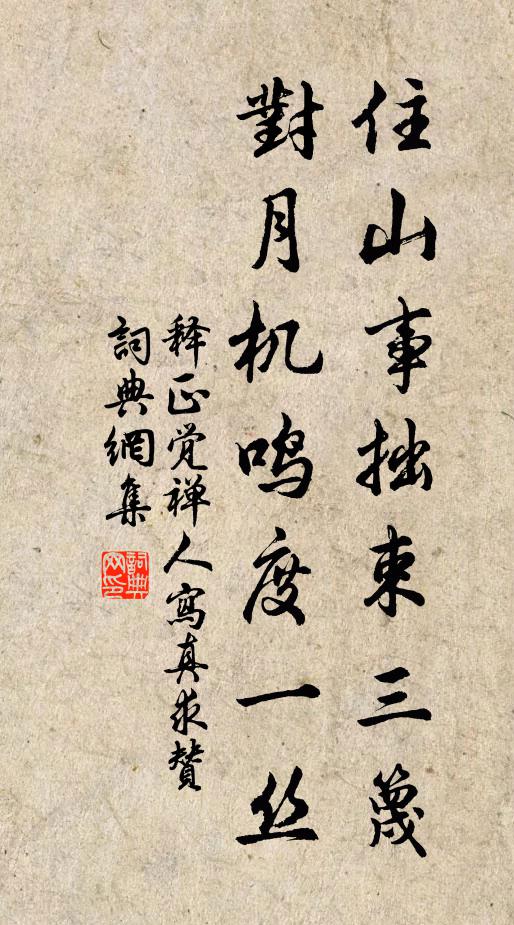 住山事拙束三篾
對月机鸣度一丝
释正觉禅人寫真求贊
詞典網集
詞典网印